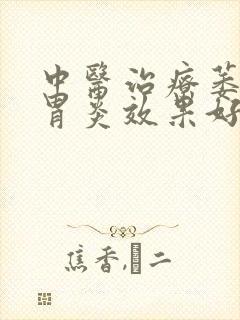 中醫治療萎
胃炎效果好
焦香,二